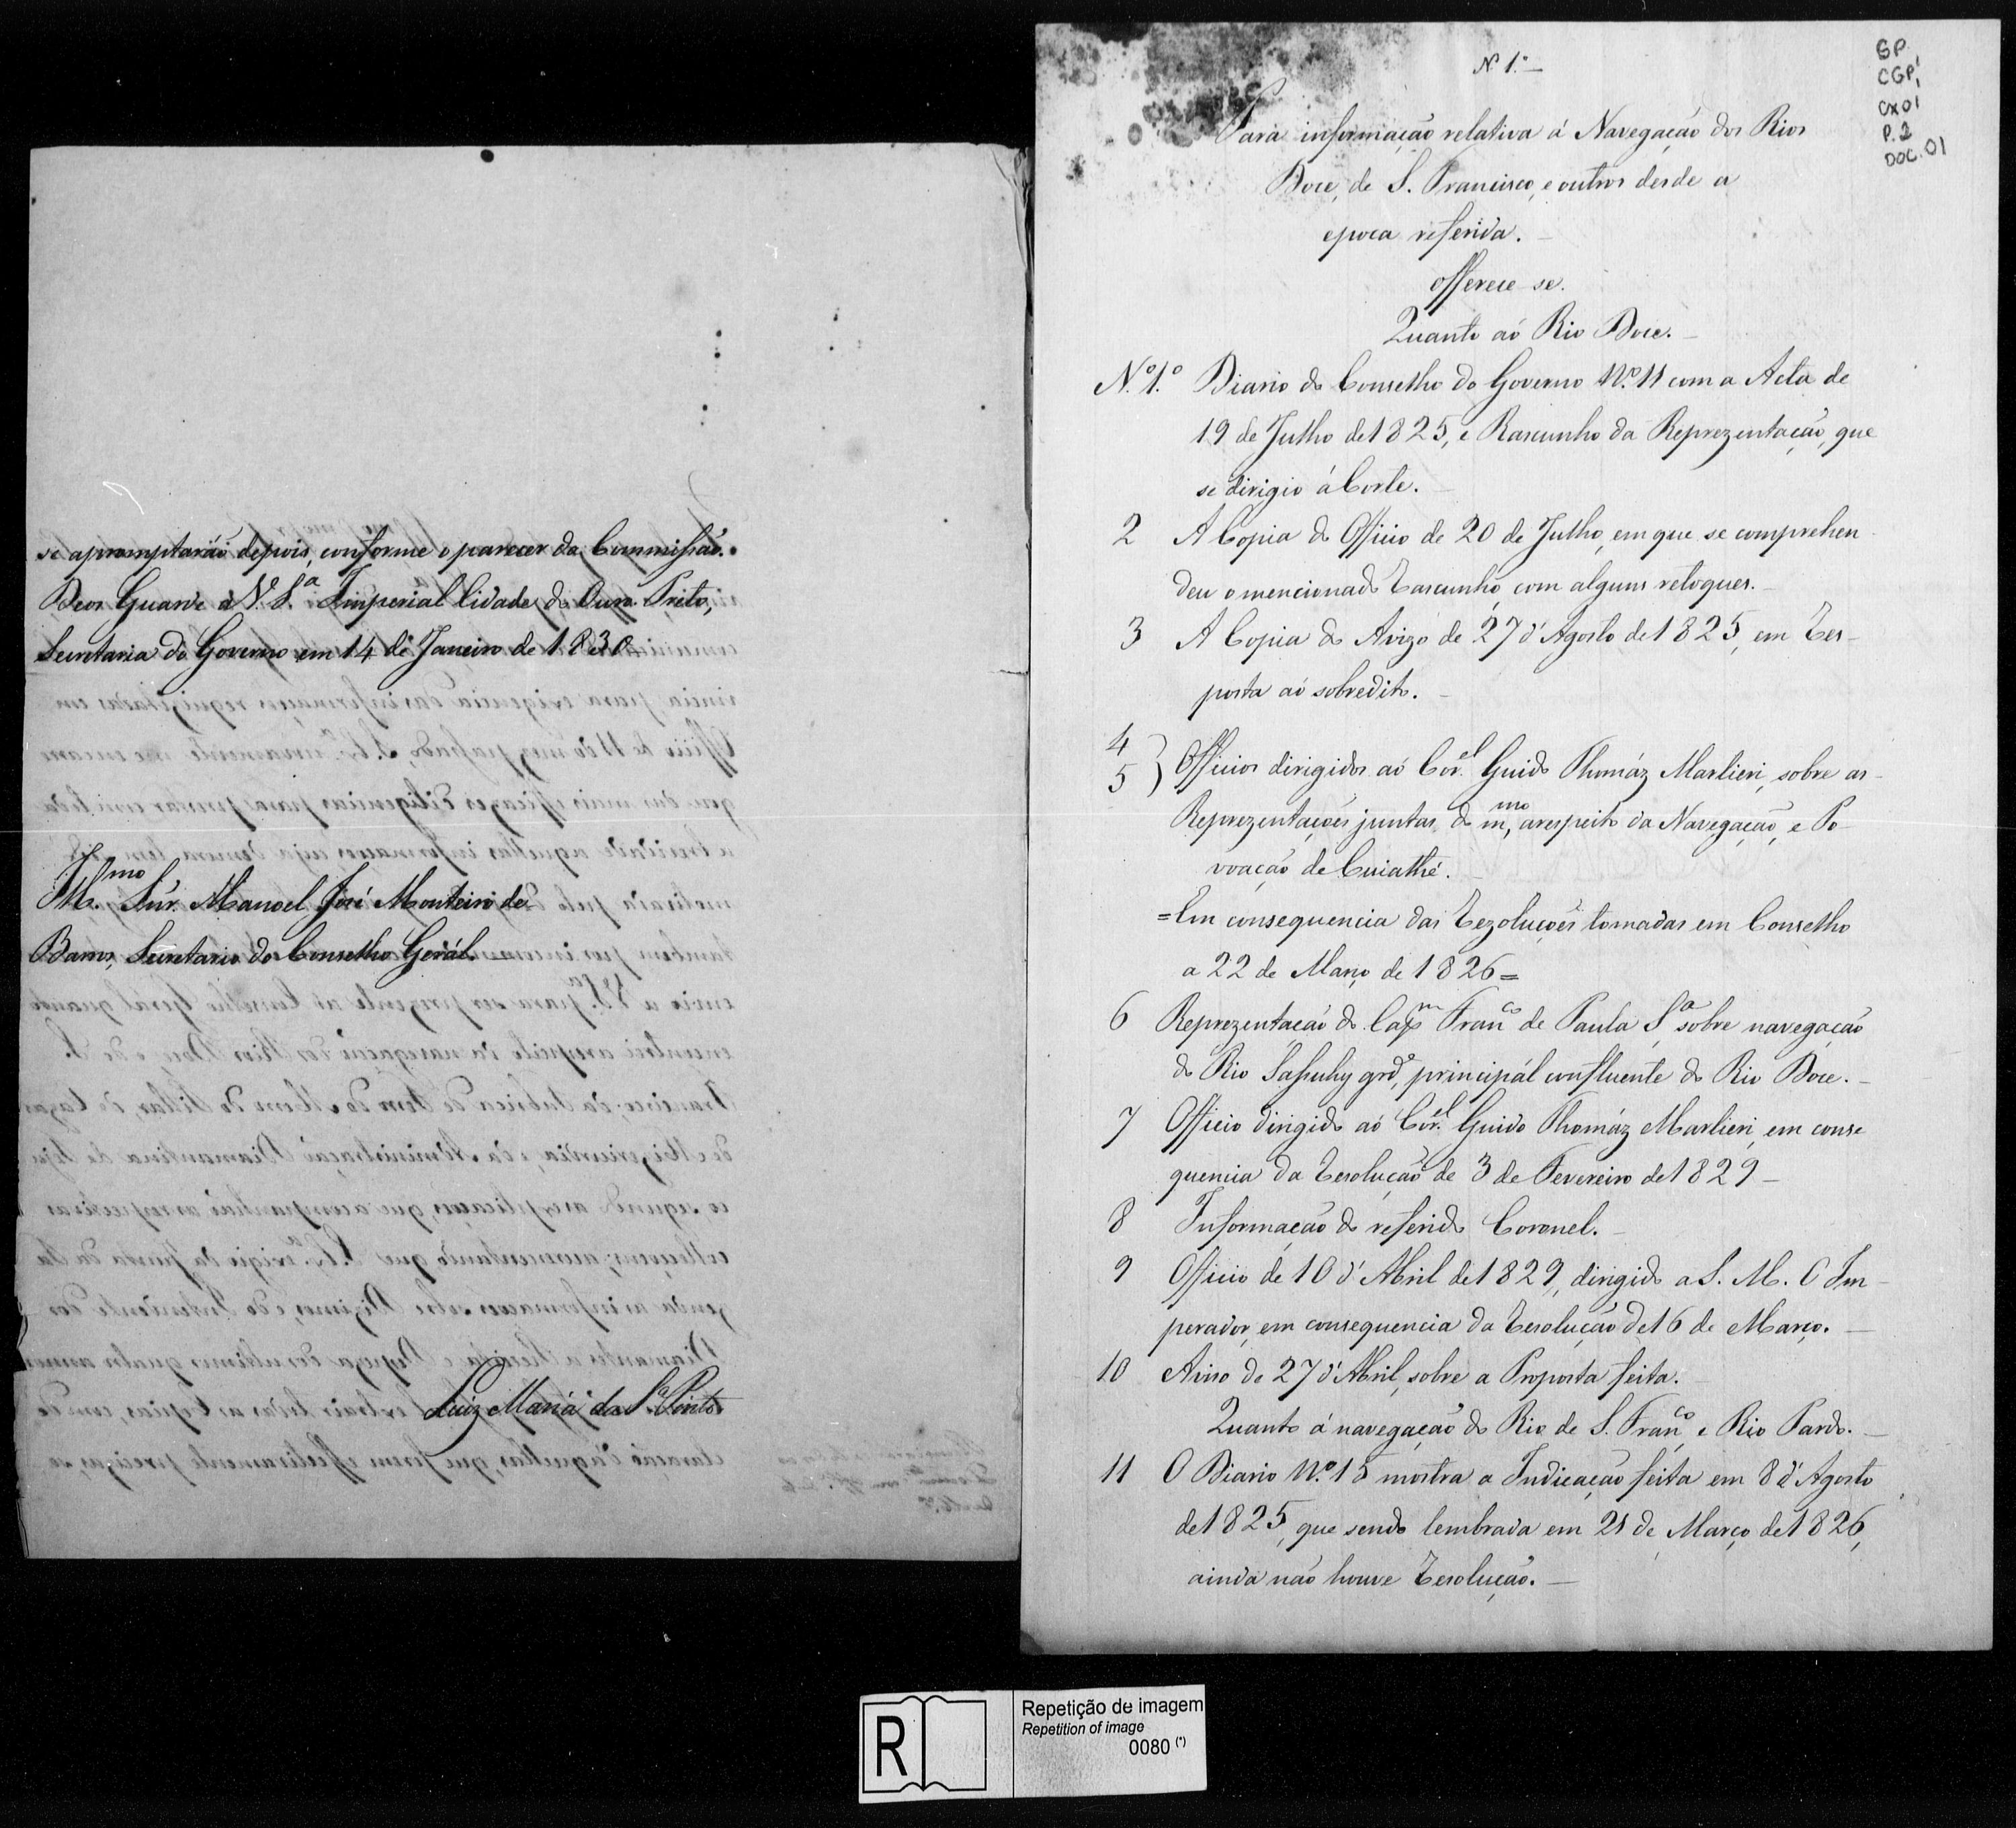 se apromptaráõ depois, conforme o parecer da Commissão.
Deos Guarde a V. S.ª Imperial Cidade do Ouro Preto,
Secretaria do Governo em 14 de Janeiro de 1830
Ill.mo Snr. Manoel José Monteiro de
Barros, Secretario do Conselho Gerál.
Luiz Maria da S.ª Pinto
GP
CGP1
CX01
P.2
DOC.01
N. 1.º
Para informação relativa á Navegação dos Rios
Doce, de S. Francisco, e outros desde a
epoca referida.
Offerece-se.
Quanto aó Rio Doce.
N.º 1.º Diario do Conselho do Governo N.º 11 com a Acta de
19 de Julho de 1825, e Rascunho da Reprezentação, que
se dirigio á Corte.
2 A Copia do Officio de 20 de Julho, em que se comprehen
deu o mencionado Rascunho, com alguns retoques.
3 A Copia do Avizo de 27 d'Agosto de 1825, em Res-
posta aó sobredito.
4
5 } Officios dirigidos aó Cor.el Guido Thomáz Marlieri, sobre as
Reprezentações juntas do m.mo, arespeito da Navegação, e Po-
voação de Cuiathé.
=Em consequencia das Rezoluções tomadas em Conselho
a 22 de Março de 1826=
6 Reprezentação do Cap.m Fran.co de Paula S.ª sobre navegação
do Rio Sassuhy grd.e, principál confluente do Rio Doce.
7 Officio dirigido aó Cor.el Guido Thomáz Marlieri, em conse
quencia da Resolução de 3 de Fevereiro de 1829
8 Informação do referido Coronel.
9 Officio de 10 d'Abril de 1829, dirigido a S. M. O Im-
perador, em consequencia da Resolução de 16 de Março.
10 Aviso de 27 d'Abril, sobre a Proposta feita.
Quanto á navegação do Rio de S. Fran.co e Rio Pardo.
11 O Diario N.º 18 mostra a Indicação feita em 8 d'Agosto
de 1825, que sendo lembrada em 21 de Março de 1826,
ainda não houve Resolução.
R
Repetição de imagem
Repetition of image
0080 (*)